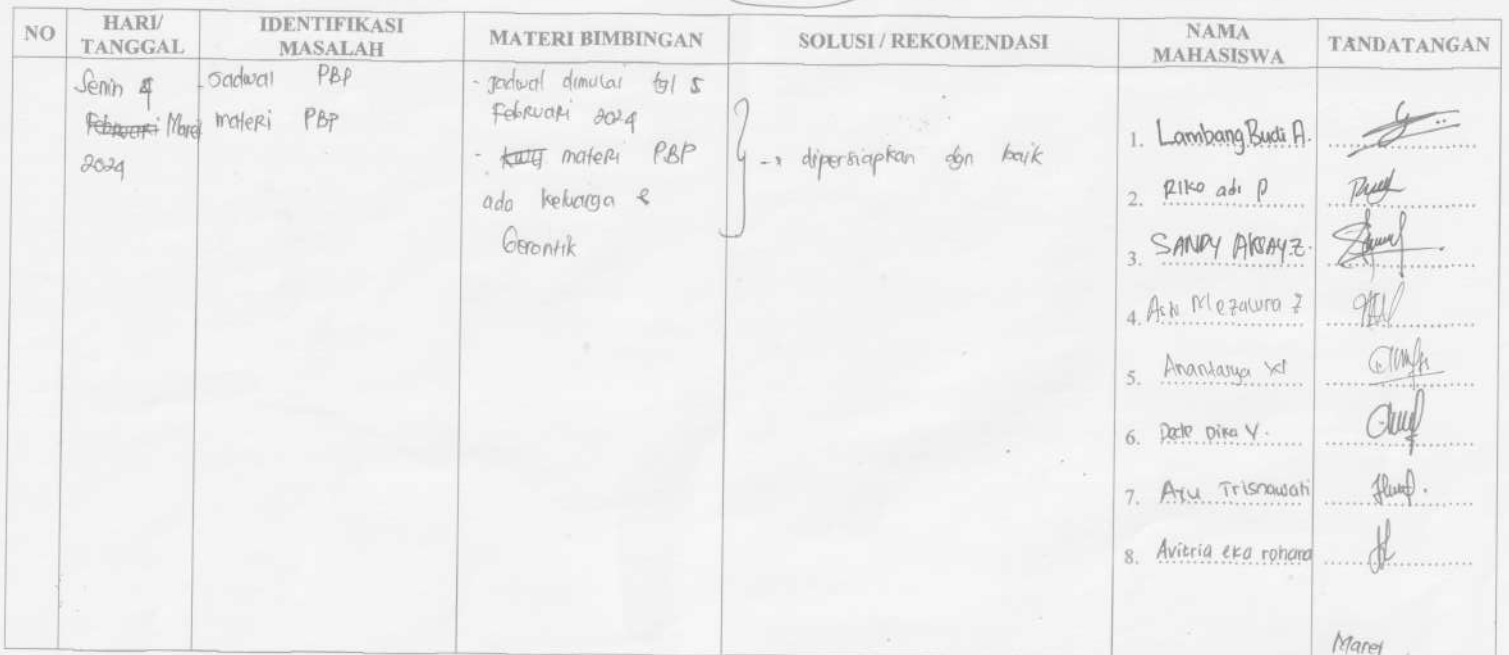 NO HARI/ TANGGAL IDENTIFIKASI MASALAH MATERI BIMBINGAN SOLUSI / REKOMENDASI NAMA MAHASISWA TANDATANGAN
Senin 4
Februari Maret
2024
- Jadwal PBP
materi PBP
- Jadwal dimulai tgl 5
Februari 2024
- materi PBP
ada keluarga &
Gerontik
-> dipersiapkan dgn baik
1. Lambang Budi A.
2. Riko adi P
3. SANDY AKSAY.Z.
4. Mezalura Z
5. Anantasya
6. Dika Y.
7. Ayu Trisnawati
8. Avitria eka rohana
Maret